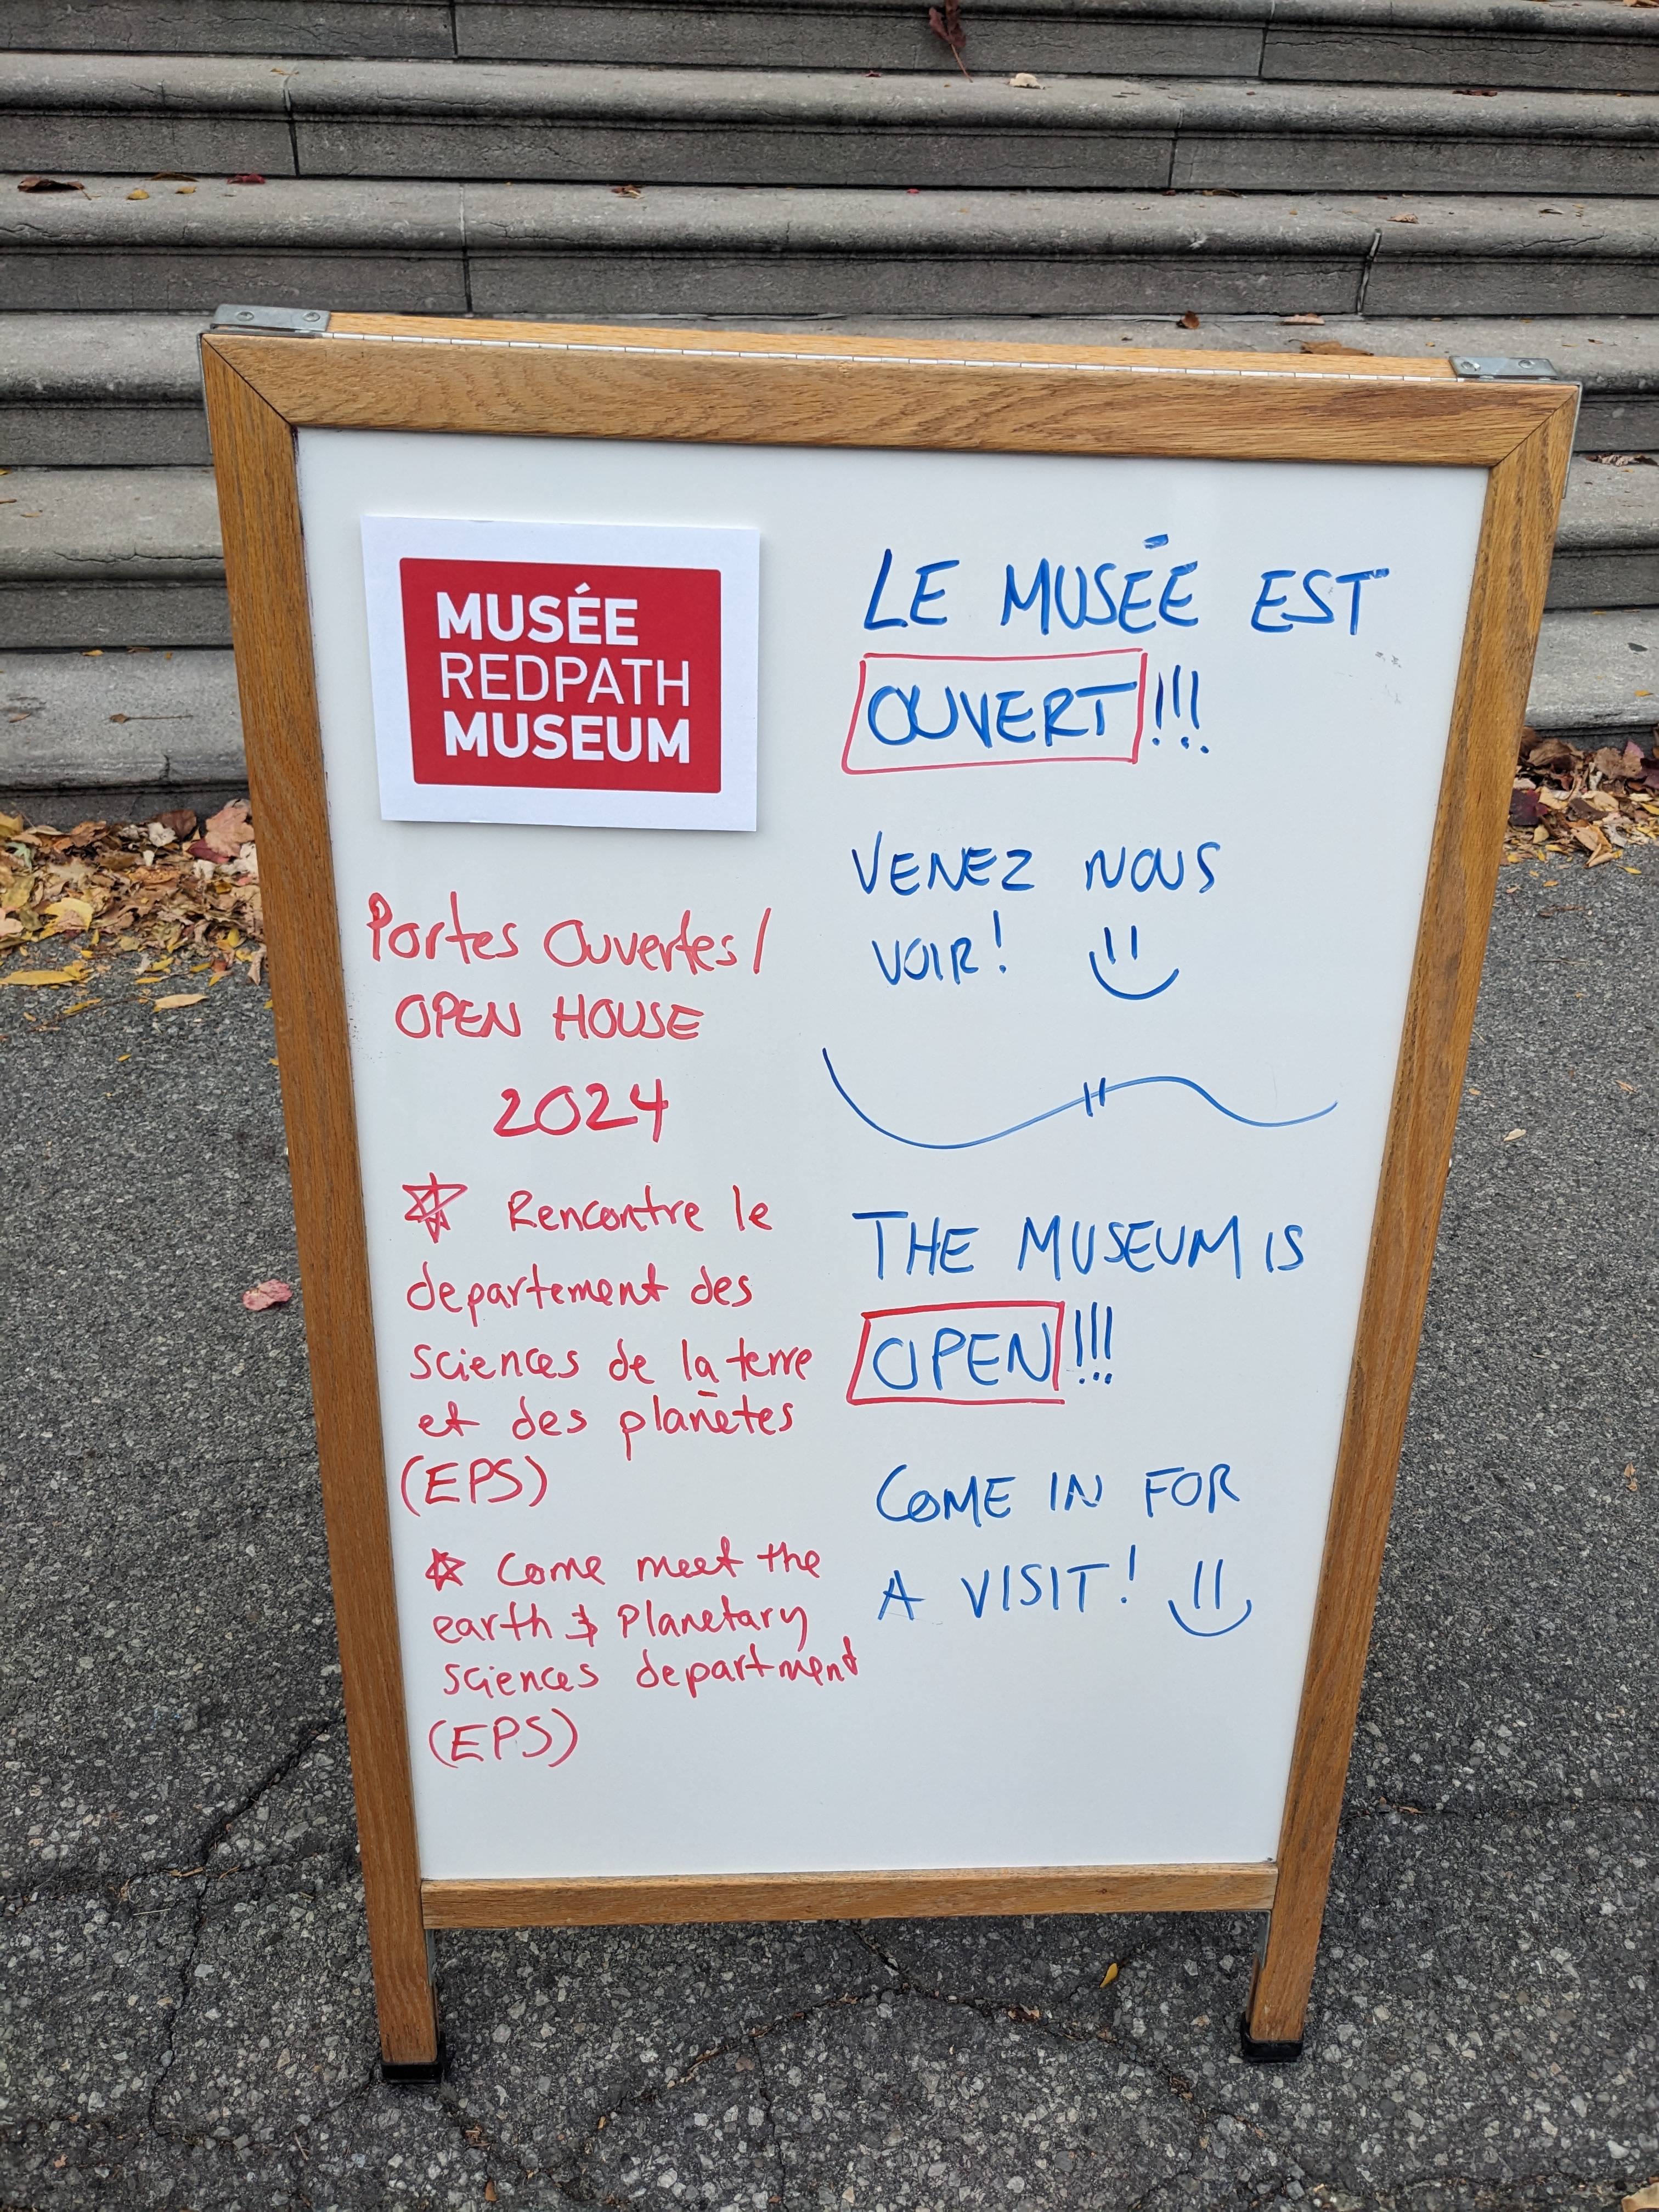 MUSÉE
REDPATH
MUSEUM
Portes Ouvertes /
OPEN HOUSE
2024
Rencontre le
departement des
sciences de la terre
et des planètes
(EPS)
Come meet the
earth & Planetary
sciences department
(EPS)
LE MUSÉE EST
OUVERT!!!
VENEZ NOUS
VOIR!
THE MUSEUM IS
OPEN!!!
COME IN FOR
A VISIT!